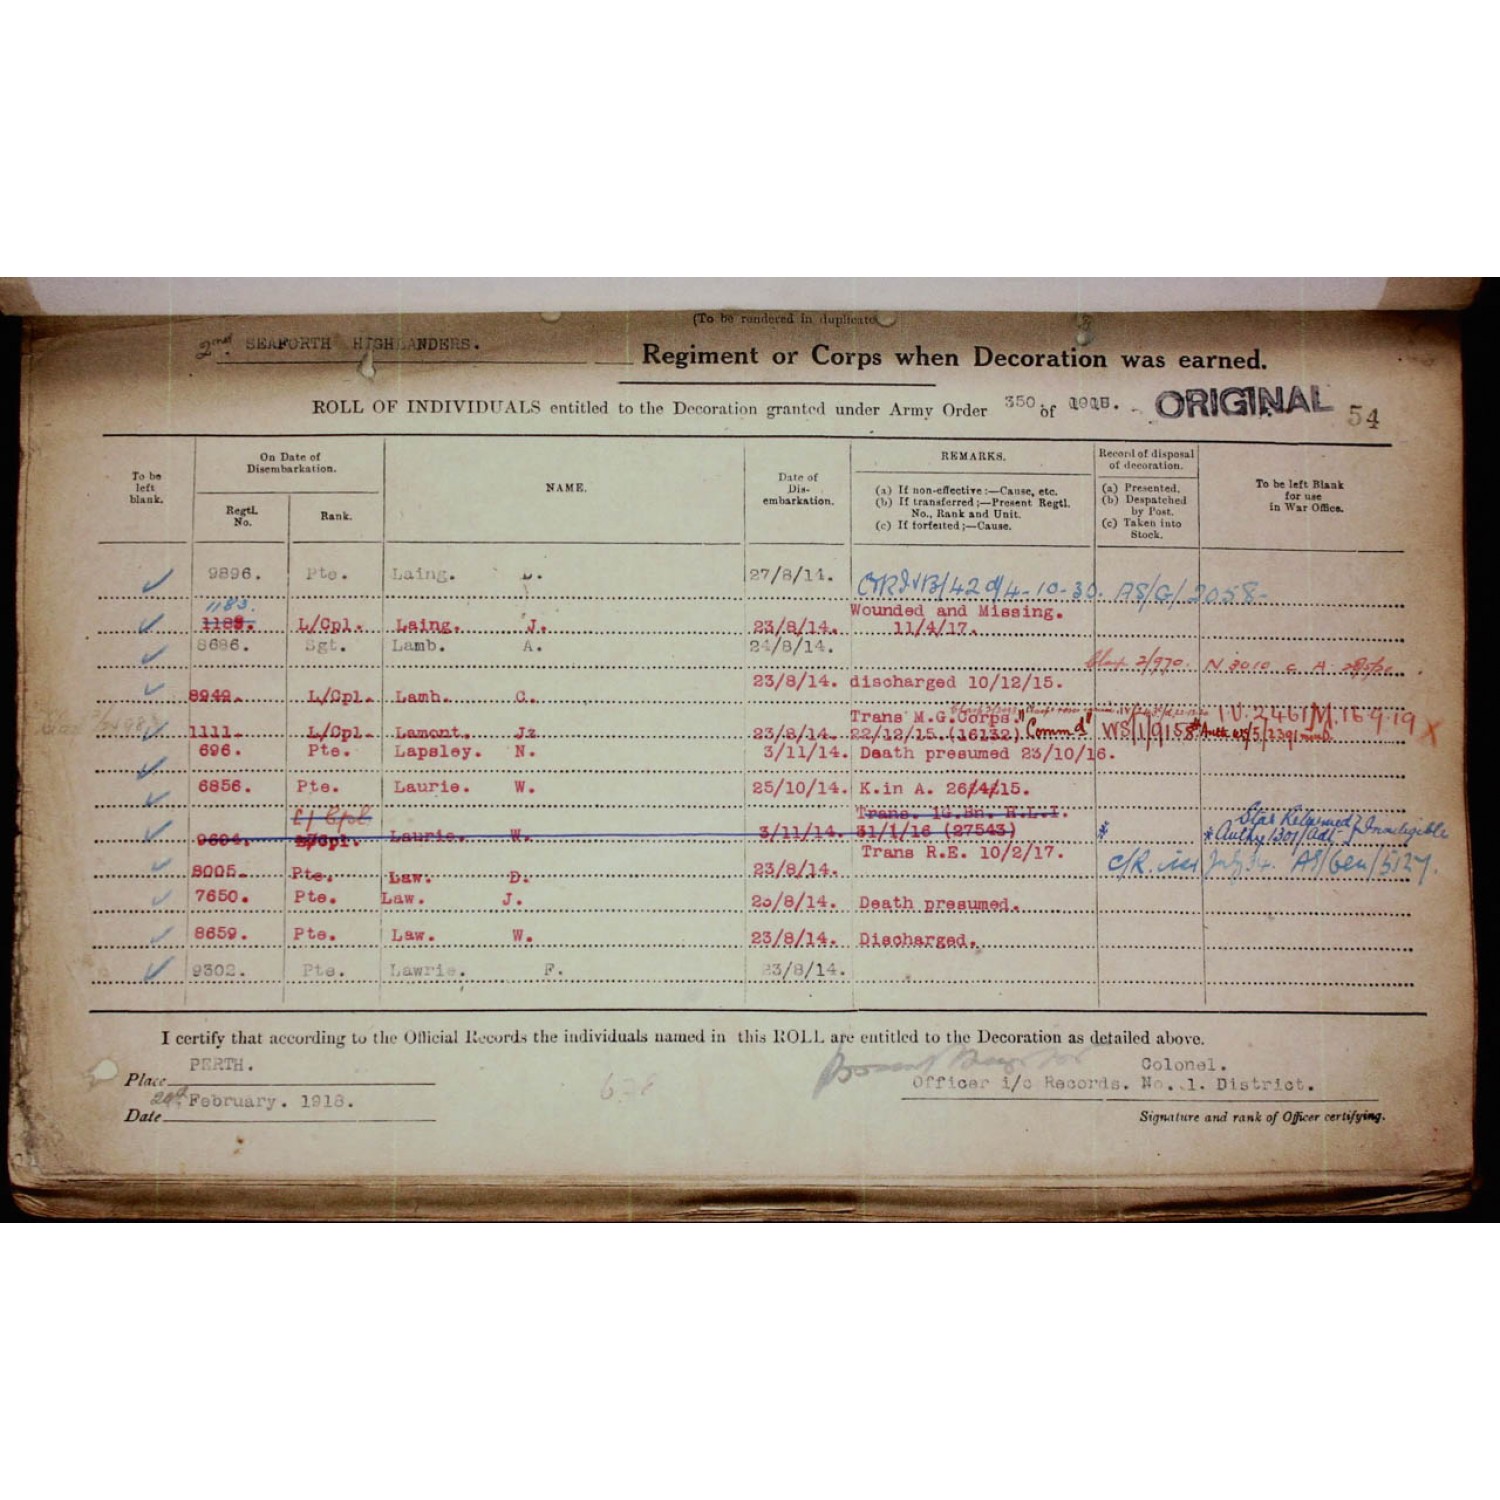 (To be rendered in duplicate
2nd. SEAFORTH HIGHLANDERS. Regiment or Corps when Decoration was earned.
ROLL OF INDIVIDUALS entitled to the Decoration granted under Army Order 350. of 1918. ORIGINAL 54
To be left blank.
On Date of Disembarkation.
Regtl. No.
Rank.
NAME.
Date of Dis-embarkation.
REMARKS.
(a) If non-effective:—Cause, etc.
(b) If transferred;—Present Regtl. No., Rank and Unit.
(c) If forfeited;—Cause.
Record of disposal of decoration.
(a) Presented.
(b) Despatched by Post.
(c) Taken into Stock.
To be left Blank for use in War Office.
9896. Pte. Laing. 27/8/14. 4-10-30. AS/G/2058
1183.
L/Cpl. Laing. J. 23/8/14. Wounded and Missing. 11/4/17.
8686. Sgt. Lamb. A. 24/8/14.
8949. L/Cpl. Lamb. C. 23/8/14. discharged 10/12/15.
1111. L/Cpl. Lamont. Jz 23/8/14. Trans M.G.Corps. 22/12/15.(16132) Comm'd WS/1/9158 I.V. 2461/M. 16.9.19 X
696. Pte. Lapsley. N. 3/11/14. Death presumed 23/10/16.
6856. Pte. Laurie. W. 25/10/14. K.in A. 26/4/15.
L/Cpl
9604. L/Cpl. Laurie. W. 3/11/14. Trans. 16.Bn. H.L.I. 31/1/16 (27543) * Star Returned
8005. Pte. Law. D. 23/8/14. Trans R.E. 10/2/17. July 34. AS/Gen/5127.
7650. Pte. Law. J. 23/8/14. Death presumed.
8659. Pte. Law. W. 23/8/14. Discharged.
9302. Pte. Lawrie. F. 23/8/14.
I certify that according to the Official Records the individuals named in this ROLL are entitled to the Decoration as detailed above.
Place PERTH.
Colonel.
Officer i/c Records. No. 1. District.
Date February. 1918.
Signature and rank of Officer certifying.